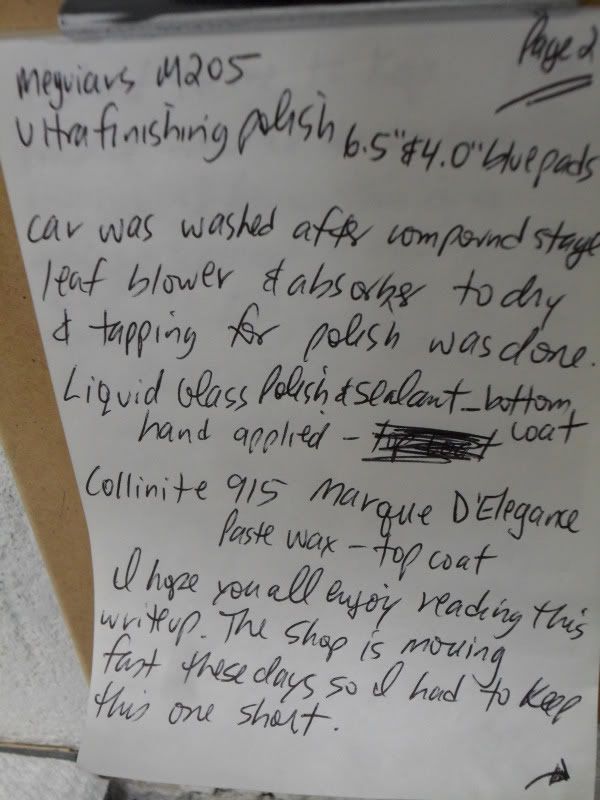 Page 2
Meguiars M205
Ultrafinishing polish 6.5" & 4.0" blue pads
car was washed after compound stage
leaf blower & absorber to dry
& tapping for polish was done.
Liquid Glass Polish & sealant - bottom
hand applied - coat
Collinite 915 Marque D'Elegance
Paste wax - top coat
I hope you all enjoy reading this
writeup. The shop is moving
fast these days so I had to keep
this one short.